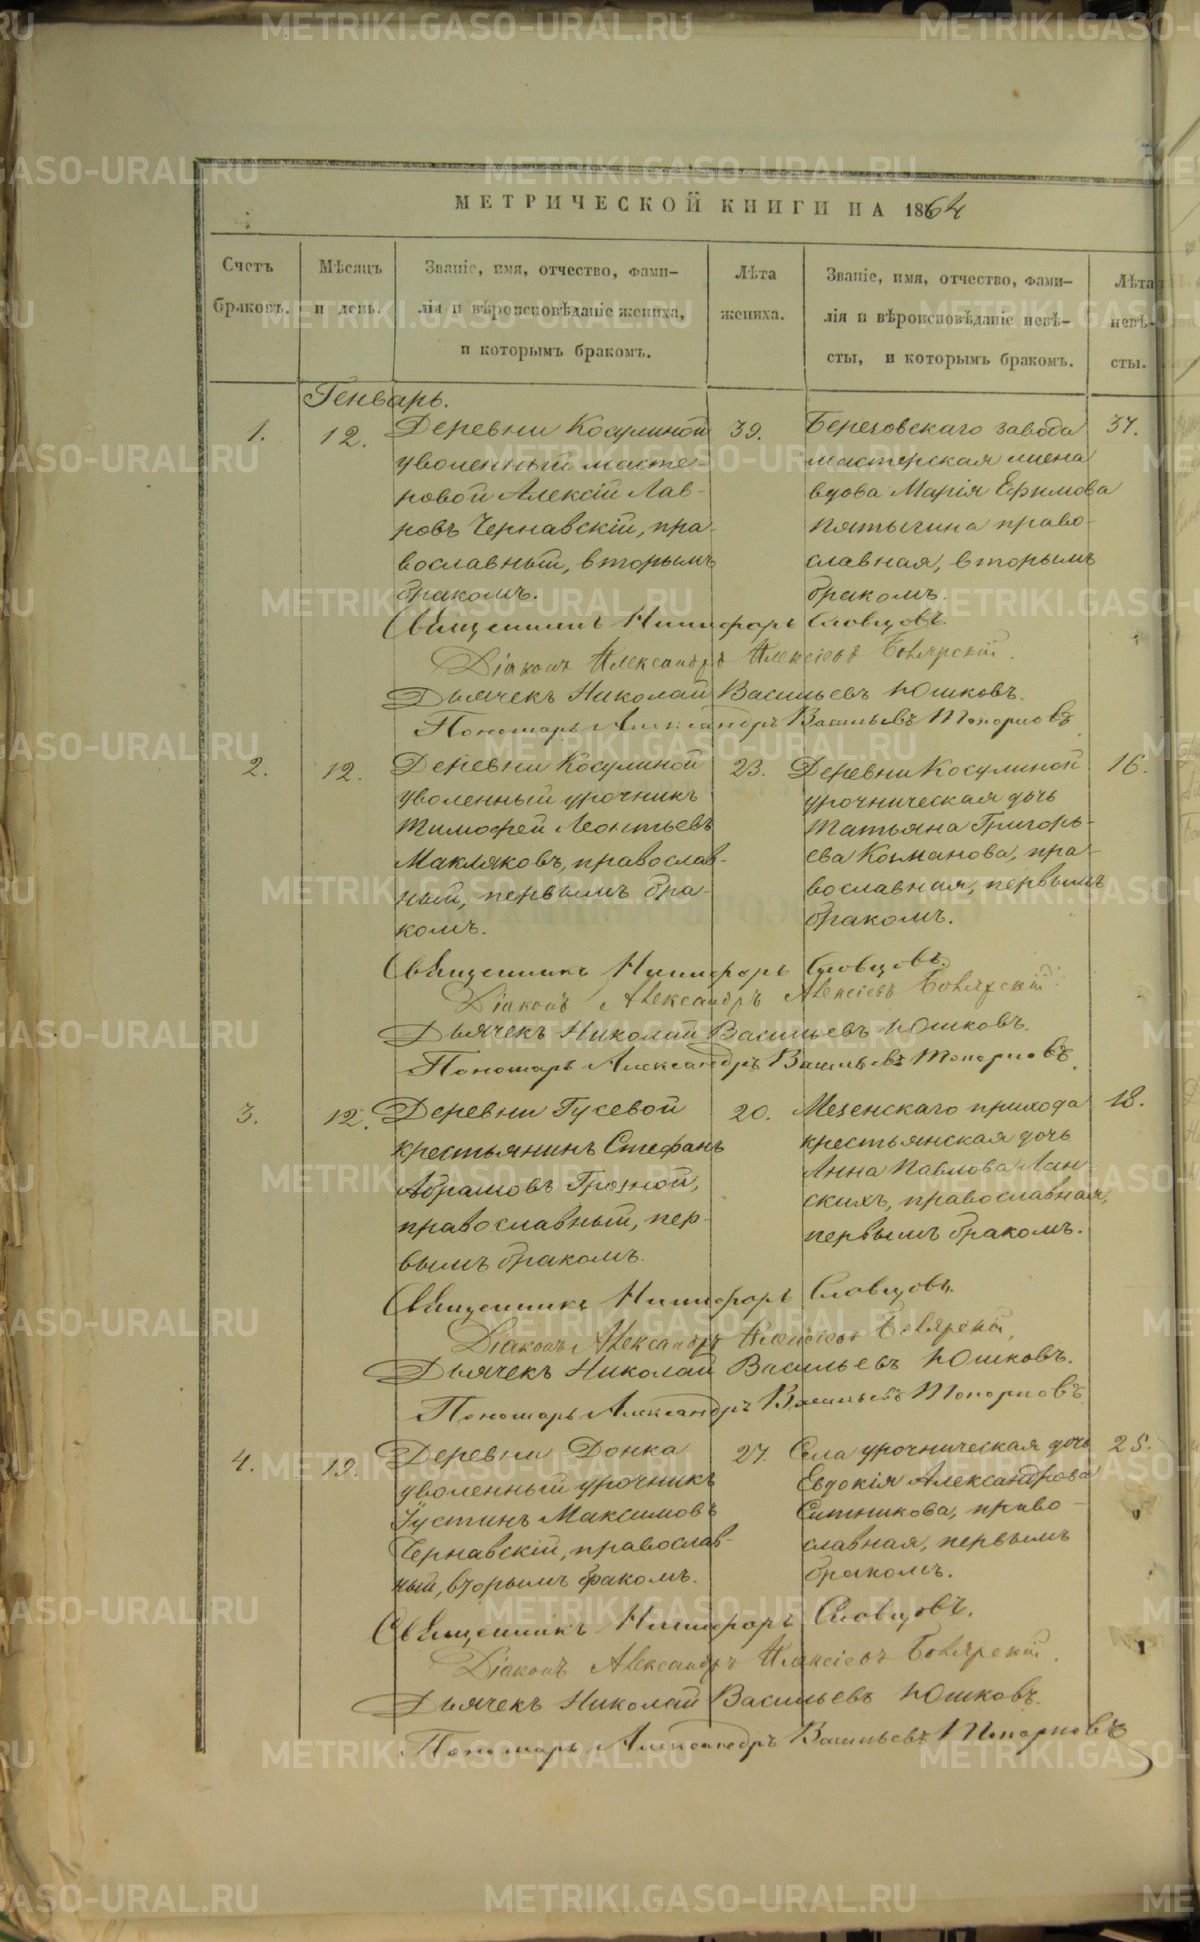 МЕТРИЧЕСКОЙ КНИГИ НА 1864
Счетъ браковъ.
Мѣсяцъ и день.
Званіе, имя, отчество, фами-
лія и вѣроисповѣданіе жениха,
и которымъ бракомъ.
Лѣта жениха.
Званіе, имя, отчество, фами-
лія и вѣроисповѣданіе невѣ-
сты, и которымъ бракомъ.
Лѣта невѣ-
сты.
Генварь.
1.
12.
Деревни Косулиной
уволенный масте-
ровой Алексій Лав-
ровъ Чернавскій, пра-
вославный, вторымъ
бракомъ.
39.
Березовскаго завода
мастерская жена
вдова Марія Ефимова
Пятыгина право-
славная, вторымъ
бракомъ.
37.
Священникъ Никифоръ Словцовъ.
Діаконъ Александръ Алексіевъ Боярскій.
Дьячекъ Николай Васильевъ Юшковъ.
Пономарь Александръ Васильевъ Топорковъ
2.
12.
Деревни Косулиной
уволенный урочникъ
Тимофей Леонтьевъ
Макляковъ, православ-
ный, первымъ бра-
комъ.
23.
Деревни Косулиной
урочническая дочь
Татьяна Григорь-
ева Колманова, пра-
вославная, первымъ
бракомъ.
16.
Священникъ Никифоръ Словцовъ.
Діаконъ Александръ Алексіевъ Боярскій
Дьячекъ Николай Васильевъ Юшковъ.
Пономарь Александръ Васильевъ Топорковъ.
3.
12.
Деревни Гусевой
крестьянинъ Стефанъ
Абрамовъ Грозной,
православный, пер-
вымъ бракомъ.
20.
Мезенскаго прихода
крестьянская дочь
Анна Павлова Лан-
скихъ, православная,
первымъ бракомъ.
18.
Священникъ Никифоръ Словцовъ.
Діаконъ Александръ Алексіевъ Боярскій,
Дьячекъ Николай Васильевъ Юшковъ.
Пономарь Александръ Васильевъ Топорковъ
4.
19.
Деревни Донка
уволенный урочникъ
Іустинъ Максимовъ
Чернавскій, православ-
ный, вторымъ бракомъ.
27.
Села урочническая дочь
Евдокія Александрова
Ситникова, право-
славная, первымъ
бракомъ.
25.
Священникъ Никифоръ Словцовъ.
Діаконъ Александръ Алексіевъ Боярскій.
Дьячекъ Николай Васильевъ Юшковъ.
Пономарь Александръ Васильевъ Топорковъ
METRIKI.GASO-URAL.RU